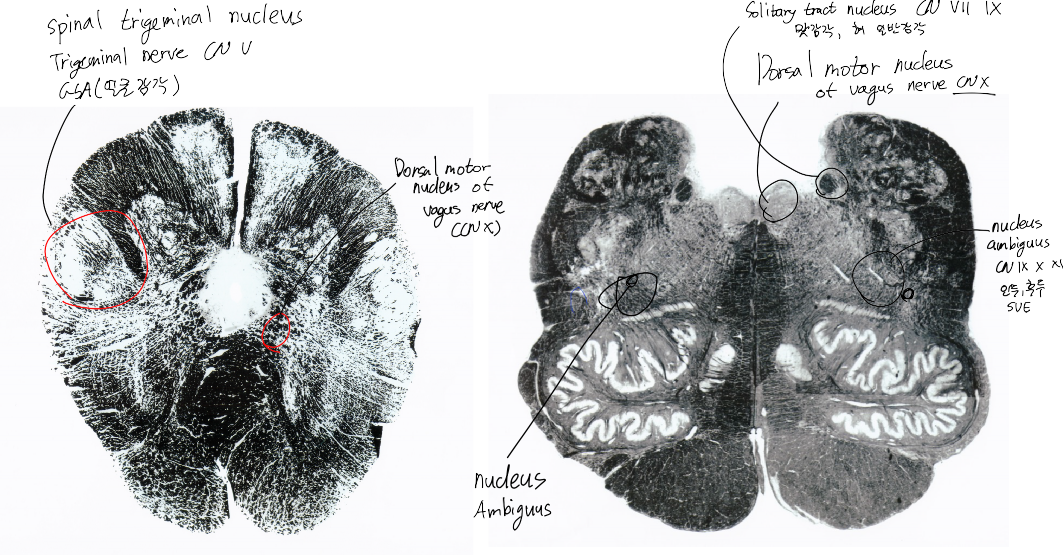 Spinal trigeminal nucleus
Trigeminal nerve CN V
GSA(얼굴감각)
Dorsal motor
nucleus of
vagus nerve
(CN X)
Solitary tract nucleus CN VII IX
맛감각, 혀 일반감각
Dorsal motor nucleus
of vagus nerve CN X
nucleus
ambiguus
CN IX X XI
인두,후두
SVE
nucleus
Ambiguus